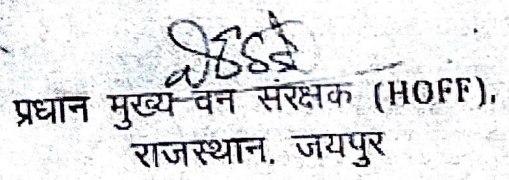 प्रधान मुख्य वन संरक्षक (HOFF),
राजस्थान, जयपुर